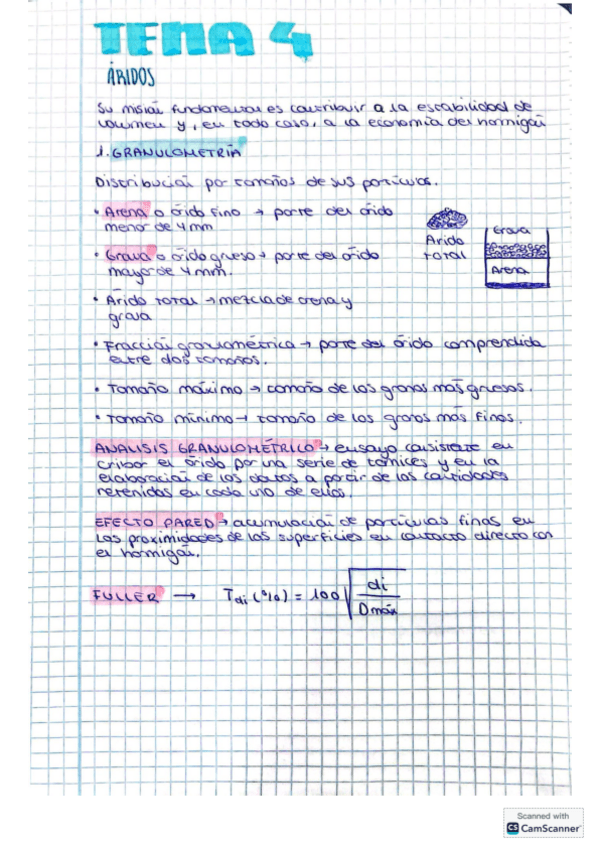 TEMA 4
ÁRIDOS
Su misión fundamental es contribuir a la estabilidad de
volumen y, en todo caso, a la economía del hormigón
1. GRANULOMETRÍA
Distribución por tamaños de sus partículas.
• Arena o árido fino → parte del árido
menor de 4 mm
• Grava o árido grueso → parte del árido
mayor de 4 mm.
Árido
total
Grava
Arena
• Árido total → mezcla de arena y
grava
• Fracción granulométrica → parte del árido comprendida
entre dos tamaños.
• Tamaño máximo → tamaño de los granos más gruesos.
• Tamaño mínimo → tamaño de los granos más finos.
ANALISIS GRANULOMÉTRICO → ensayo consistente en
cribar el árido por una serie de tamices y en la
elaboración de los datos a partir de las cantidades
retenidas en cada uno de ellos.
EFECTO PARED → acumulación de partículas finas en
las proximidades de las superficies en contacto directo con
el hormigón.
FULLER → Tdi (%) = 100 √(di / Dmáx)
Scanned with
CS CamScanner